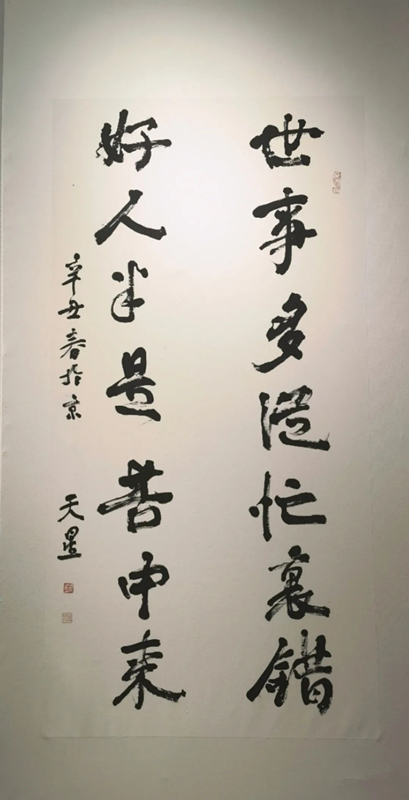 世事多從忙裏錯
好人半是苦中來
辛丑春於京
天星